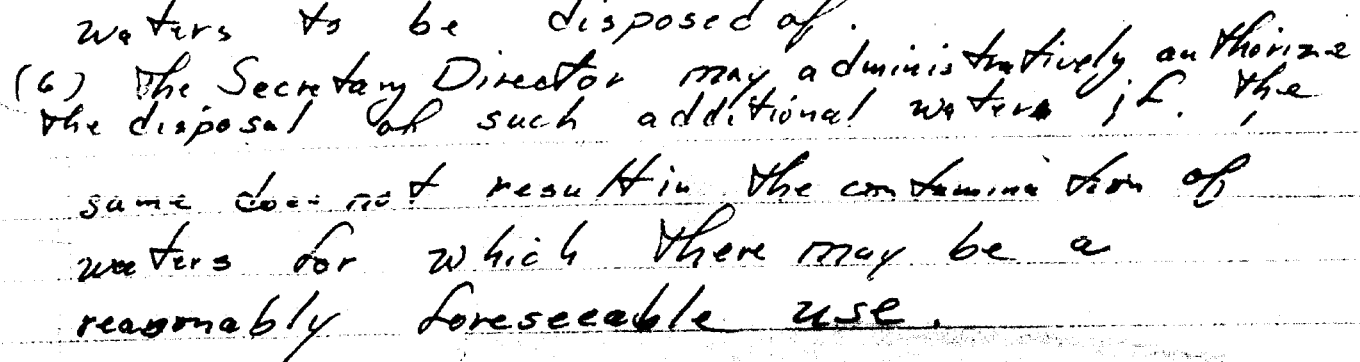 waters to be disposed of.
(6) The Secretary Director may administratively authorize
the disposal of such additional waters if the
same does not result in the contamination of
waters for which there may be a
reasonably foreseeable use.